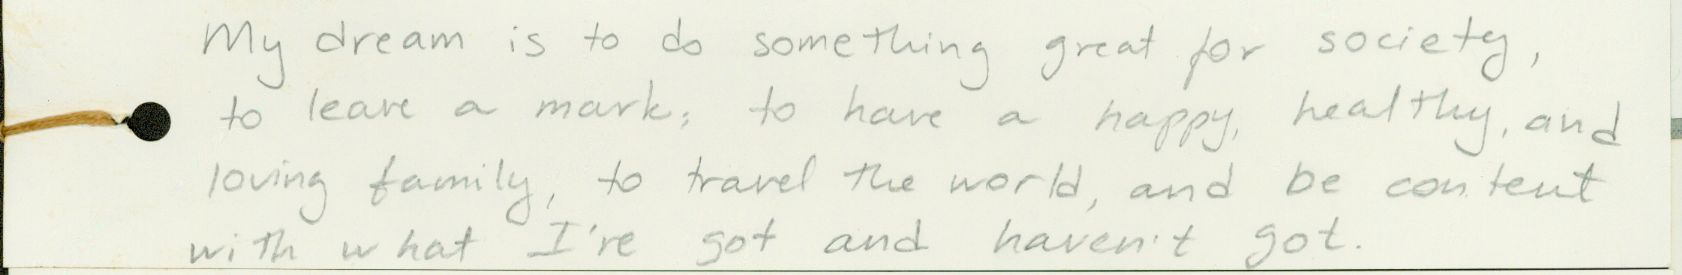 My dream is to do something great for society,
to leave a mark; to have a happy, healthy, and
loving family, to travel the world, and be content
with what I're got and haven't got.